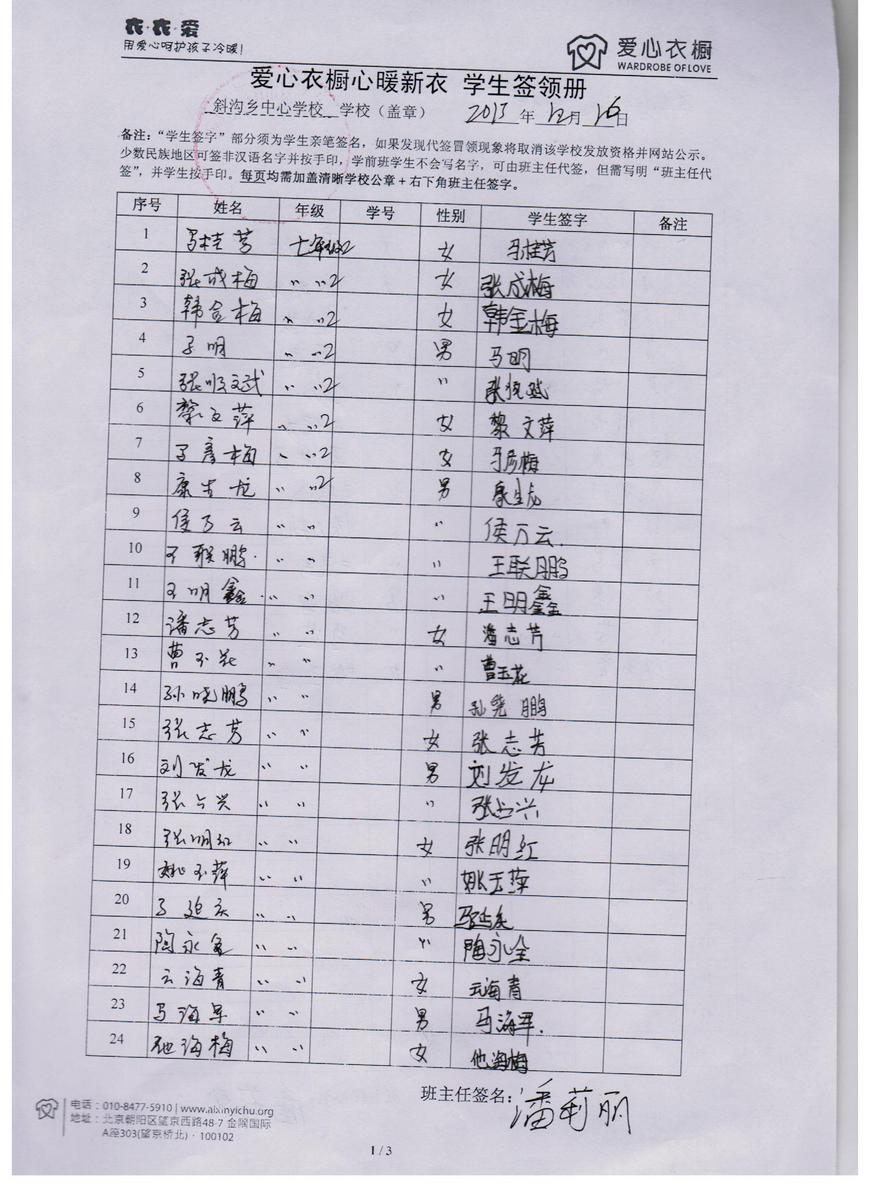 衣·衣·爱
用爱心呵护孩子冷暖!
爱心衣橱
WARDROBE OF LOVE
爱心衣橱心暖新衣 学生签领册
斜沟乡中心学校 学校（盖章） 2015 年 12 月 26 日
备注：“学生签字”部分须为学生亲笔签名，如果发现代签冒领现象将取消该学校发放资格并网站公示。
少数民族地区可签非汉语名字并按手印，学前班学生不会写名字，可由班主任代签，但需写明“班主任代
签”，并学生按手印。每页均需加盖清晰学校公章+右下角班主任签字。
序号 姓名 年级 学号 性别 学生签字 备注
1 马桂芳 七年级2 女 马桂芳
2 张成梅 〃 〃2 女 张成梅
3 韩金梅 〃 〃2 女 韩金梅
4 马明 〃 〃2 男 马明
5 张顺斌 〃 〃2 〃
6 黎文萍 〃 〃2 女 黎文萍
7 马彦梅 〃 〃2 女 马彦梅
8 康生龙 〃 〃2 男 康生龙
9 侯万云 〃 〃 〃 侯万云.
10 王联鹏. 〃 〃 〃 王联鹏
11 王明鑫. 〃 〃 〃 王明鑫
12 潘志芳 〃 〃 女 潘志芳
13 曹玉花 〃 〃 〃 曹玉花
14 孙晓鹏 〃 〃 男 孙晓鹏
15 张志芳 〃 〃 女 张志芳
16 刘发龙 〃 〃 男 刘发龙
17 张占兴 〃 〃 〃 张占兴
18 张明红 〃 〃 女 张明红
19 姚玉萍 〃 〃 〃 姚玉萍
20 马 〃 〃 男 马
21 陶永金 〃 〃 〃 陶永全
22 云海青 〃 〃 女 云海青
23 马海军 〃 〃 男 马海军.
24 他海梅 〃 〃 女 他海梅
班主任签名：潘莉丽
电话：010-8477-5910 | www.aixinyichu.org
地址：北京朝阳区望京西路48-7 金隅国际
A座303(望京桥北)·100102
1 / 3